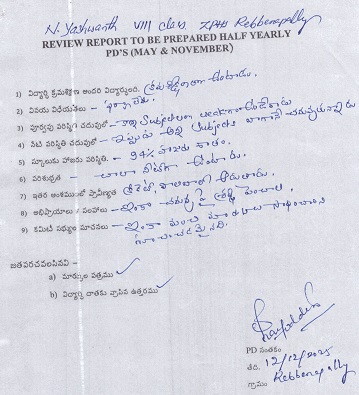 N. Yashwanth VIII class ZPHS Rebbenapally
REVIEW REPORT TO BE PREPARED HALF YEARLY
PD'S (MAY & NOVEMBER)
1) విద్యార్థి క్రమశిక్షణ అందరి విద్యార్థులతో, క్రమశిక్షణగా ఉంటాడు.
2) వినయ విధేయతలు - బాగా లేదు.
3) పూర్వపు పరిస్థితి చదువులో - కొన్ని Subjectలలో weakగా ఉండేవాడు
4) నేటి పరిస్థితి చదువులో - ఇప్పుడు అన్ని Subjects బాగానే చదువుతున్నాడు
5) స్కూలుకు హాజరు పరిస్థితి. - 94% హాజరు శాతం.
6) పరిశుభ్రత - చాలా నీట్‌గా ఉంటాడు.
7) ఇతర అంశములలో ప్రావీణ్యత క్రికెట్, వాలీబాల్ ఆడుతాడు.
8) అభిప్రాయాలు / సలహాలు - ఇంకా చదువు పై శ్రద్ధ పెంచాలి.
9) కమిటీ సభ్యుల సూచనలు - ఇంకా మంచి మార్కులు సాధించాలని
సూచించడమైనది.
జతపరచవలసినవి -
a) మార్కుల పత్రము ✓
b) విద్యార్థి దాతకు వ్రాసిన ఉత్తరము ✓
PD సంతకం
తేది. 12/12/2025
గ్రామం Rebbenapally